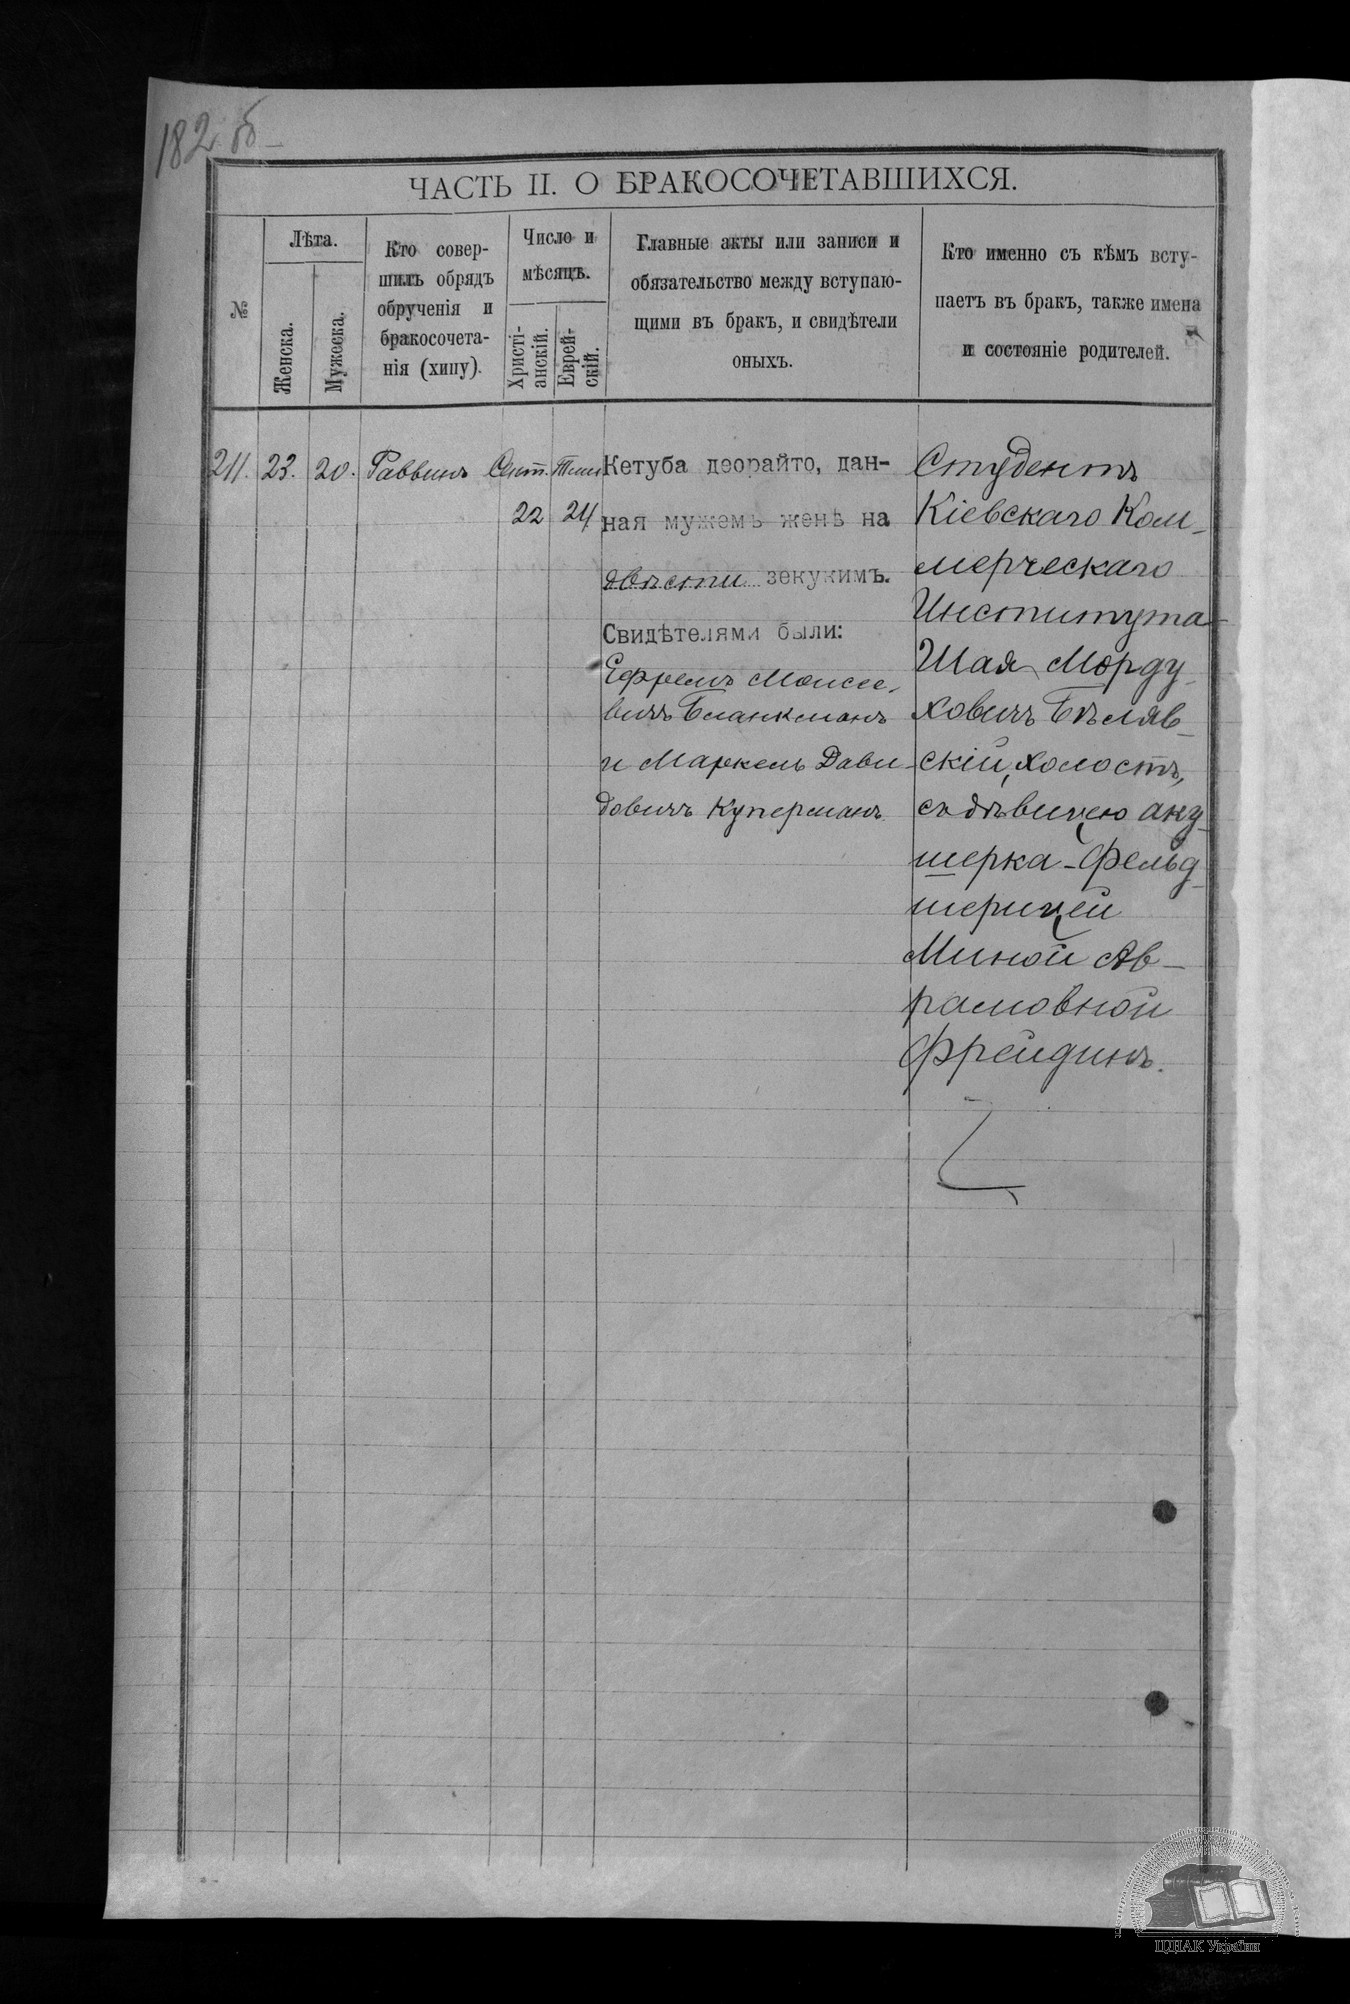 182 об
ЧАСТЬ II. О БРАКОСОЧЕТАВШИХСЯ.
№
Лѣта.
Женска.
Мужеска.
Кто совер-
шилъ обрядъ
обрученія и
бракосочета-
нія (хипу).
Число и
мѣсяцъ.
Христі-
анскій.
Еврей-
скій.
Главные акты или записи и
обязательство между вступаю-
щими въ бракъ, и свидѣтели
оныхъ.
Кто именно съ кѣмъ всту-
паетъ въ бракъ, также имена
и состояніе родителей.
211.
23.
20.
Раввинъ
Сент.
22
Тиш
24
Кетуба деорайто, дан-
ная мужемъ женѣ на
двѣсти зекукимъ.
Свидѣтелями были:
Ефремъ Моисее-
вичъ Бланкманъ
и Маркель Дави-
довичъ Куперманъ
Студентъ
Кіевскаго Ком-
мерческаго
Института
Шая Морду-
ховичъ Бѣляв-
скій, холостъ,
съ дѣвицею аку-
шерка-фельд-
шерицей
Миной Ав-
рамовной
Фрейдинъ.
ЦДІАК України